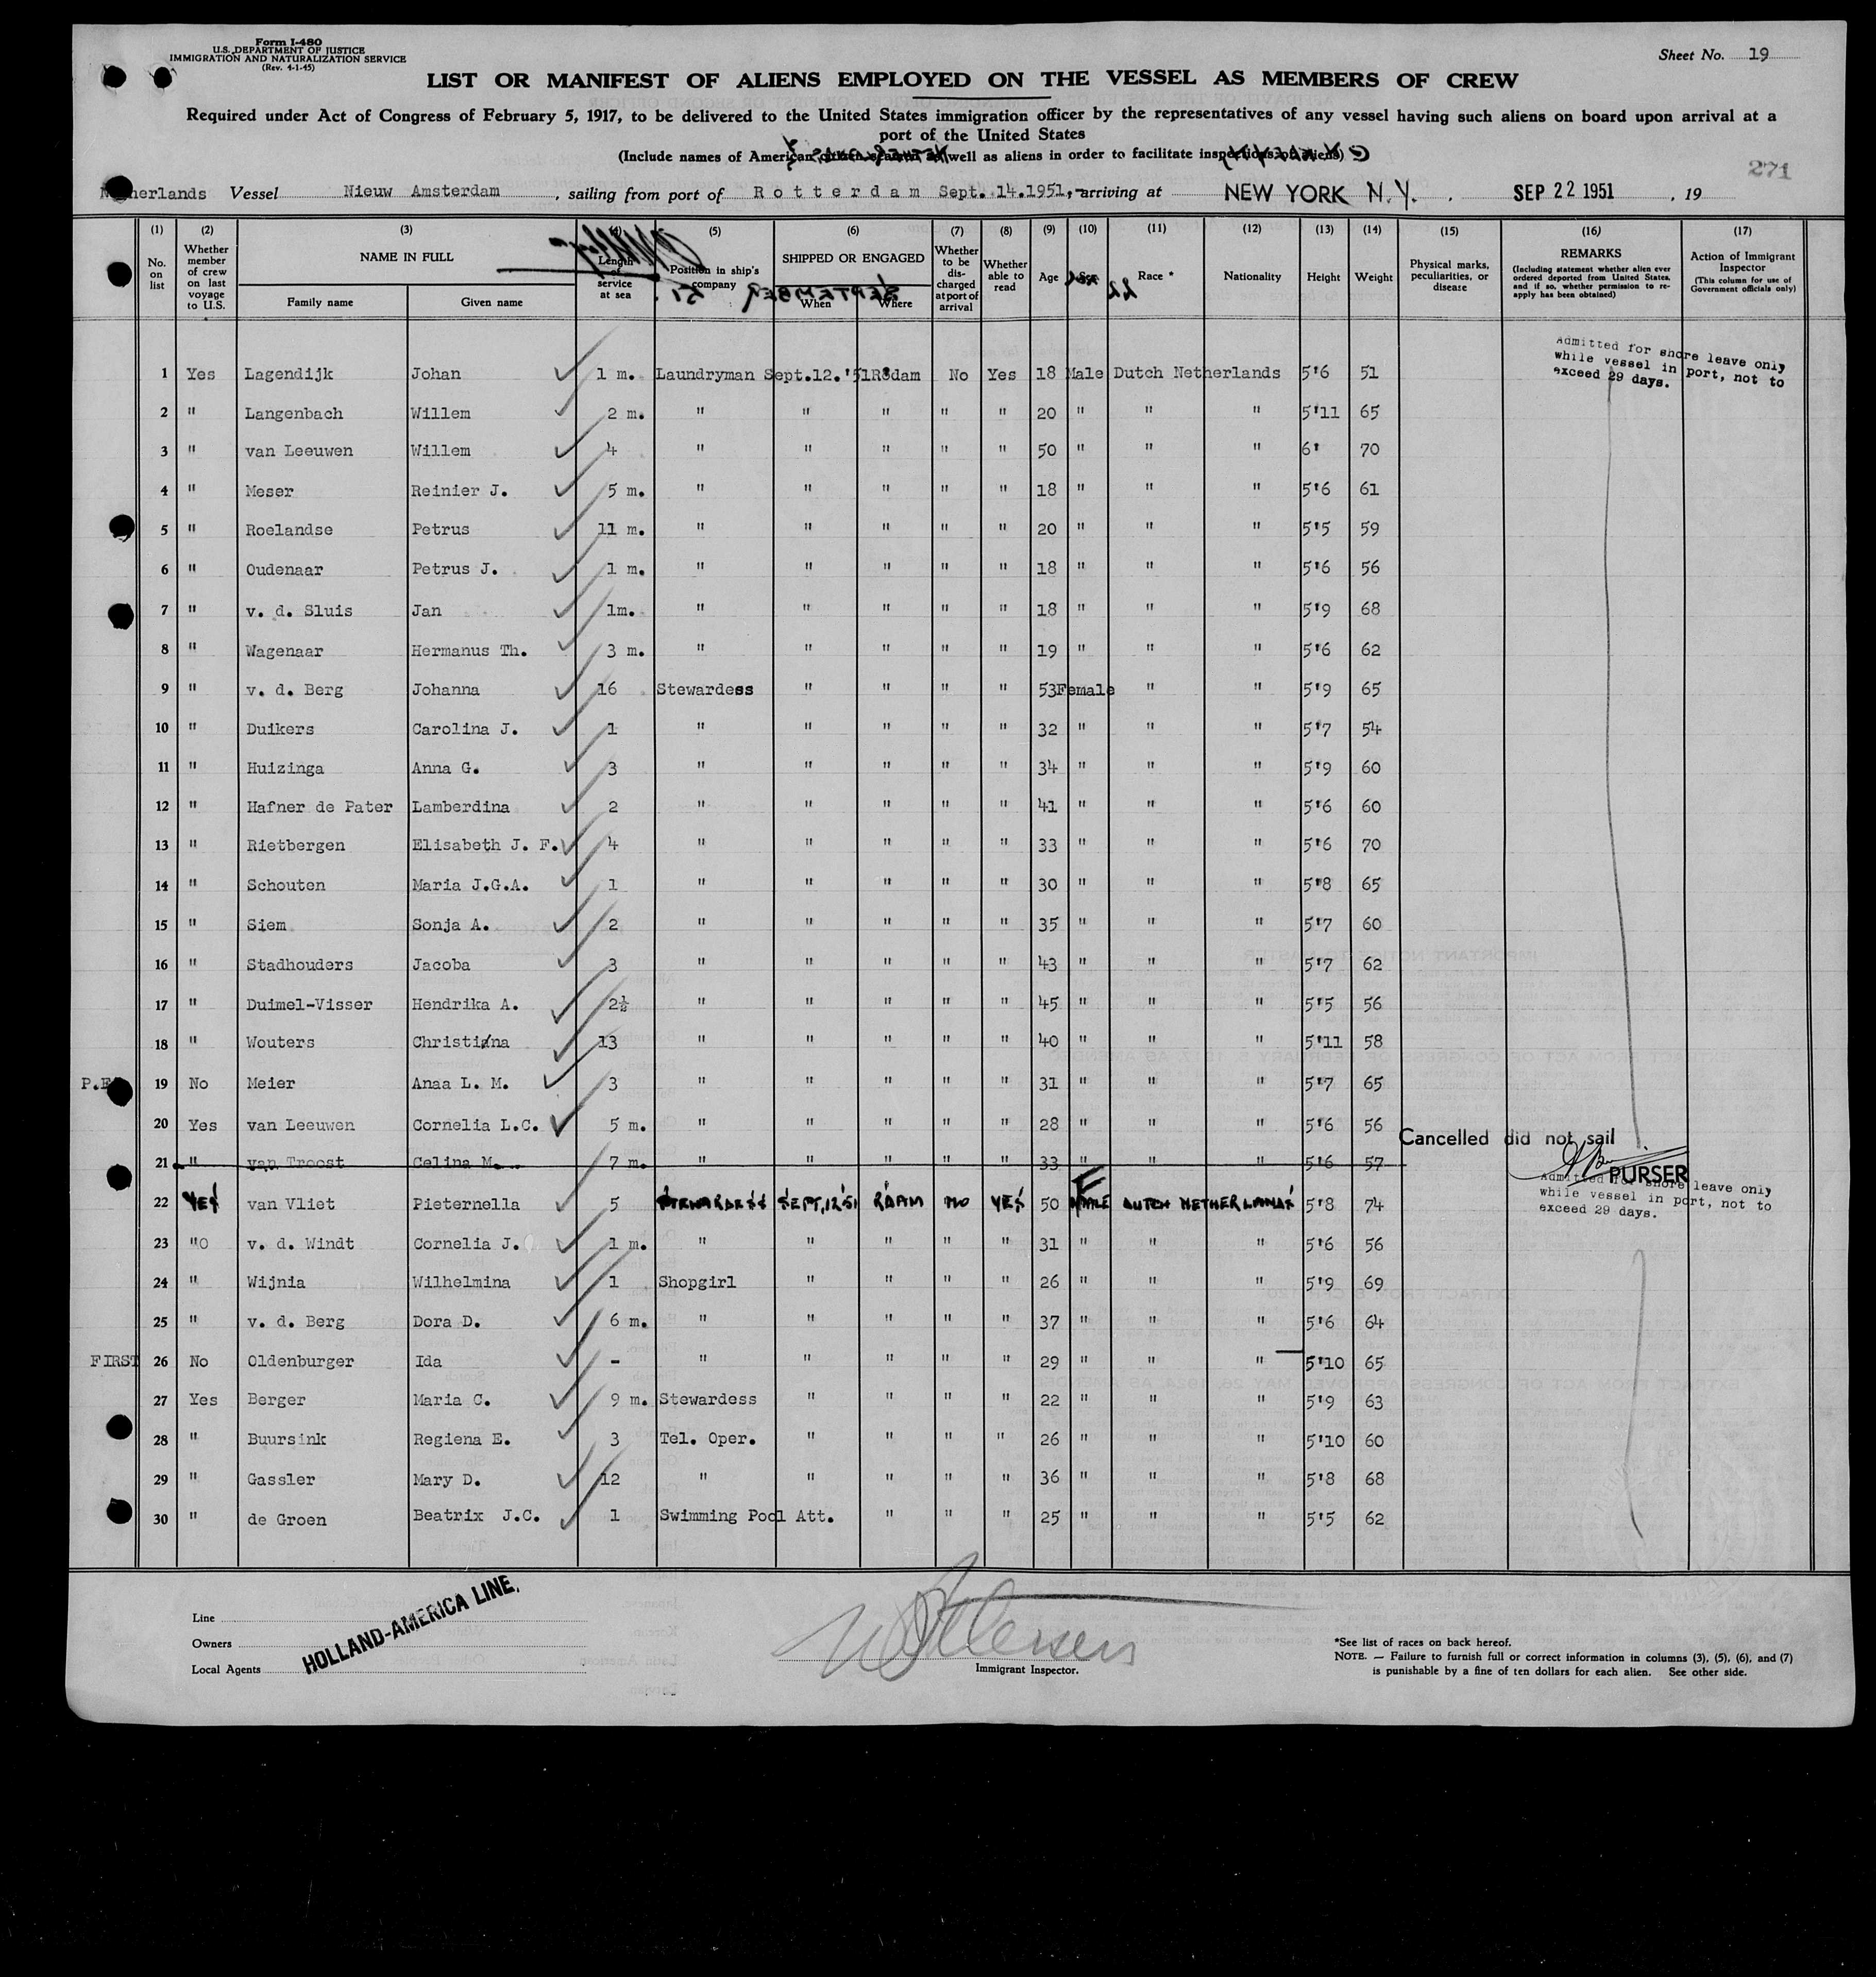 Form I-480
U.S. DEPARTMENT OF JUSTICE
IMMIGRATION AND NATURALIZATION SERVICE
(Rev. 4-1-45)
Sheet No. 19
LIST OR MANIFEST OF ALIENS EMPLOYED ON THE VESSEL AS MEMBERS OF CREW
Required under Act of Congress of February 5, 1917, to be delivered to the United States immigration officer by the representatives of any vessel having such aliens on board upon arrival at a
port of the United States
(Include names of American well as aliens in order to facilitate inspections of aliens)
271
Netherlands Vessel Nieuw Amsterdam, sailing from port of Rotterdam Sept. 14.1951,-arriving at NEW YORK N.Y. , SEP 22 1951 , 19
(1) No. on list (2) Whether member of crew on last voyage to U.S. (3) NAME IN FULL Family name Given name (4) Length of service at sea (5) Position in ship's company (6) SHIPPED OR ENGAGED When Where (7) Whether to be discharged at port of arrival (8) Whether able to read (9) Age (10) Sex (11) Race * (12) Nationality (13) Height (14) Weight (15) Physical marks, peculiarities, or disease (16) REMARKS (Including statement whether alien ever ordered deported from United States, and if so, whether permission to re-apply has been obtained) (17) Action of Immigrant Inspector (This column for use of Government officials only)
SEPTEMBER 51 22
Admitted for shore leave only
while vessel in port, not to
exceed 29 days.
1 Yes Lagendijk Johan 1 m. Laundryman Sept.12.'51 R'dam No Yes 18 Male Dutch Netherlands 5'6 51
2 " Langenbach Willem 2 m. " " " " " 20 " " " 5'11 65
3 " van Leeuwen Willem 4 " " " " " 50 " " " 6' 70
4 " Meser Reinier J. 5 m. " " " " " 18 " " " 5'6 61
5 " Roelandse Petrus 11 m. " " " " " 20 " " " 5'5 59
6 " Oudenaar Petrus J. 1 m. " " " " " 18 " " " 5'6 56
7 " v. d. Sluis Jan 1m. " " " " " 18 " " " 5'9 68
8 " Wagenaar Hermanus Th. 3 m. " " " " " 19 " " " 5'6 62
9 " v. d. Berg Johanna 16 Stewardess " " " " 53 Female " " 5'9 65
10 " Duikers Carolina J. 1 " " " " " 32 " " " 5'7 54
11 " Huizinga Anna G. 3 " " " " " 34 " " " 5'9 60
12 " Hafner de Pater Lamberdina 2 " " " " " 41 " " " 5'6 60
13 " Rietbergen Elisabeth J. F. 4 " " " " " 33 " " " 5'6 70
14 " Schouten Maria J.G.A. 1 " " " " " 30 " " " 5'8 65
15 " Siem Sonja A. 2 " " " " " 35 " " " 5'7 60
16 " Stadhouders Jacoba 3 " " " " " 43 " " " 5'7 62
17 " Duimel-Visser Hendrika A. 2½ " " " " " 45 " " " 5'5 56
18 " Wouters Christina 13 " " " " " 40 " " " 5'11 58
19 No Meier Anaa L. M. 3 " " " " " 31 " " " 5'7 65
20 Yes van Leeuwen Cornelia L.C. 5 m. " " " " " 28 " " " 5'6 56
Cancelled did not sail
21 " van Troost Celina M. 7 m. " " " " " 33 " " " 5'6 57
PURSER
Admitted for shore leave only
while vessel in port, not to
exceed 29 days.
22 YES van Vliet Pieternella 5 STEWARDESS SEPT,12'51 R'DAM NO YES 50 F MALE DUTCH NETHERLANDS 5'8 74
23 "O v. d. Windt Cornelia J. 1 m. " " " " " 31 " " " 5'6 56
24 " Wijnia Wilhelmina 1 Shopgirl " " " " 26 " " " 5'9 69
25 " v. d. Berg Dora D. 6 m. " " " " " 37 " " " 5'6 64
FIRST 26 No Oldenburger Ida - " " " " " 29 " " " 5'10 65
27 Yes Berger Maria C. 9 m. Stewardess " " " " 22 " " " 5'9 63
28 " Buursink Regiena E. 3 Tel. Oper. " " " " 26 " " " 5'10 60
29 " Gassler Mary D. 12 " " " " " 36 " " " 5'8 68
30 " de Groen Beatrix J.C. 1 Swimming Pool Att. " " " 25 " " " 5'5 62
Line
Owners
Local Agents
HOLLAND-AMERICA LINE.
Immigrant Inspector.
*See list of races on back hereof.
NOTE. — Failure to furnish full or correct information in columns (3), (5), (6), and (7)
is punishable by a fine of ten dollars for each alien. See other side.